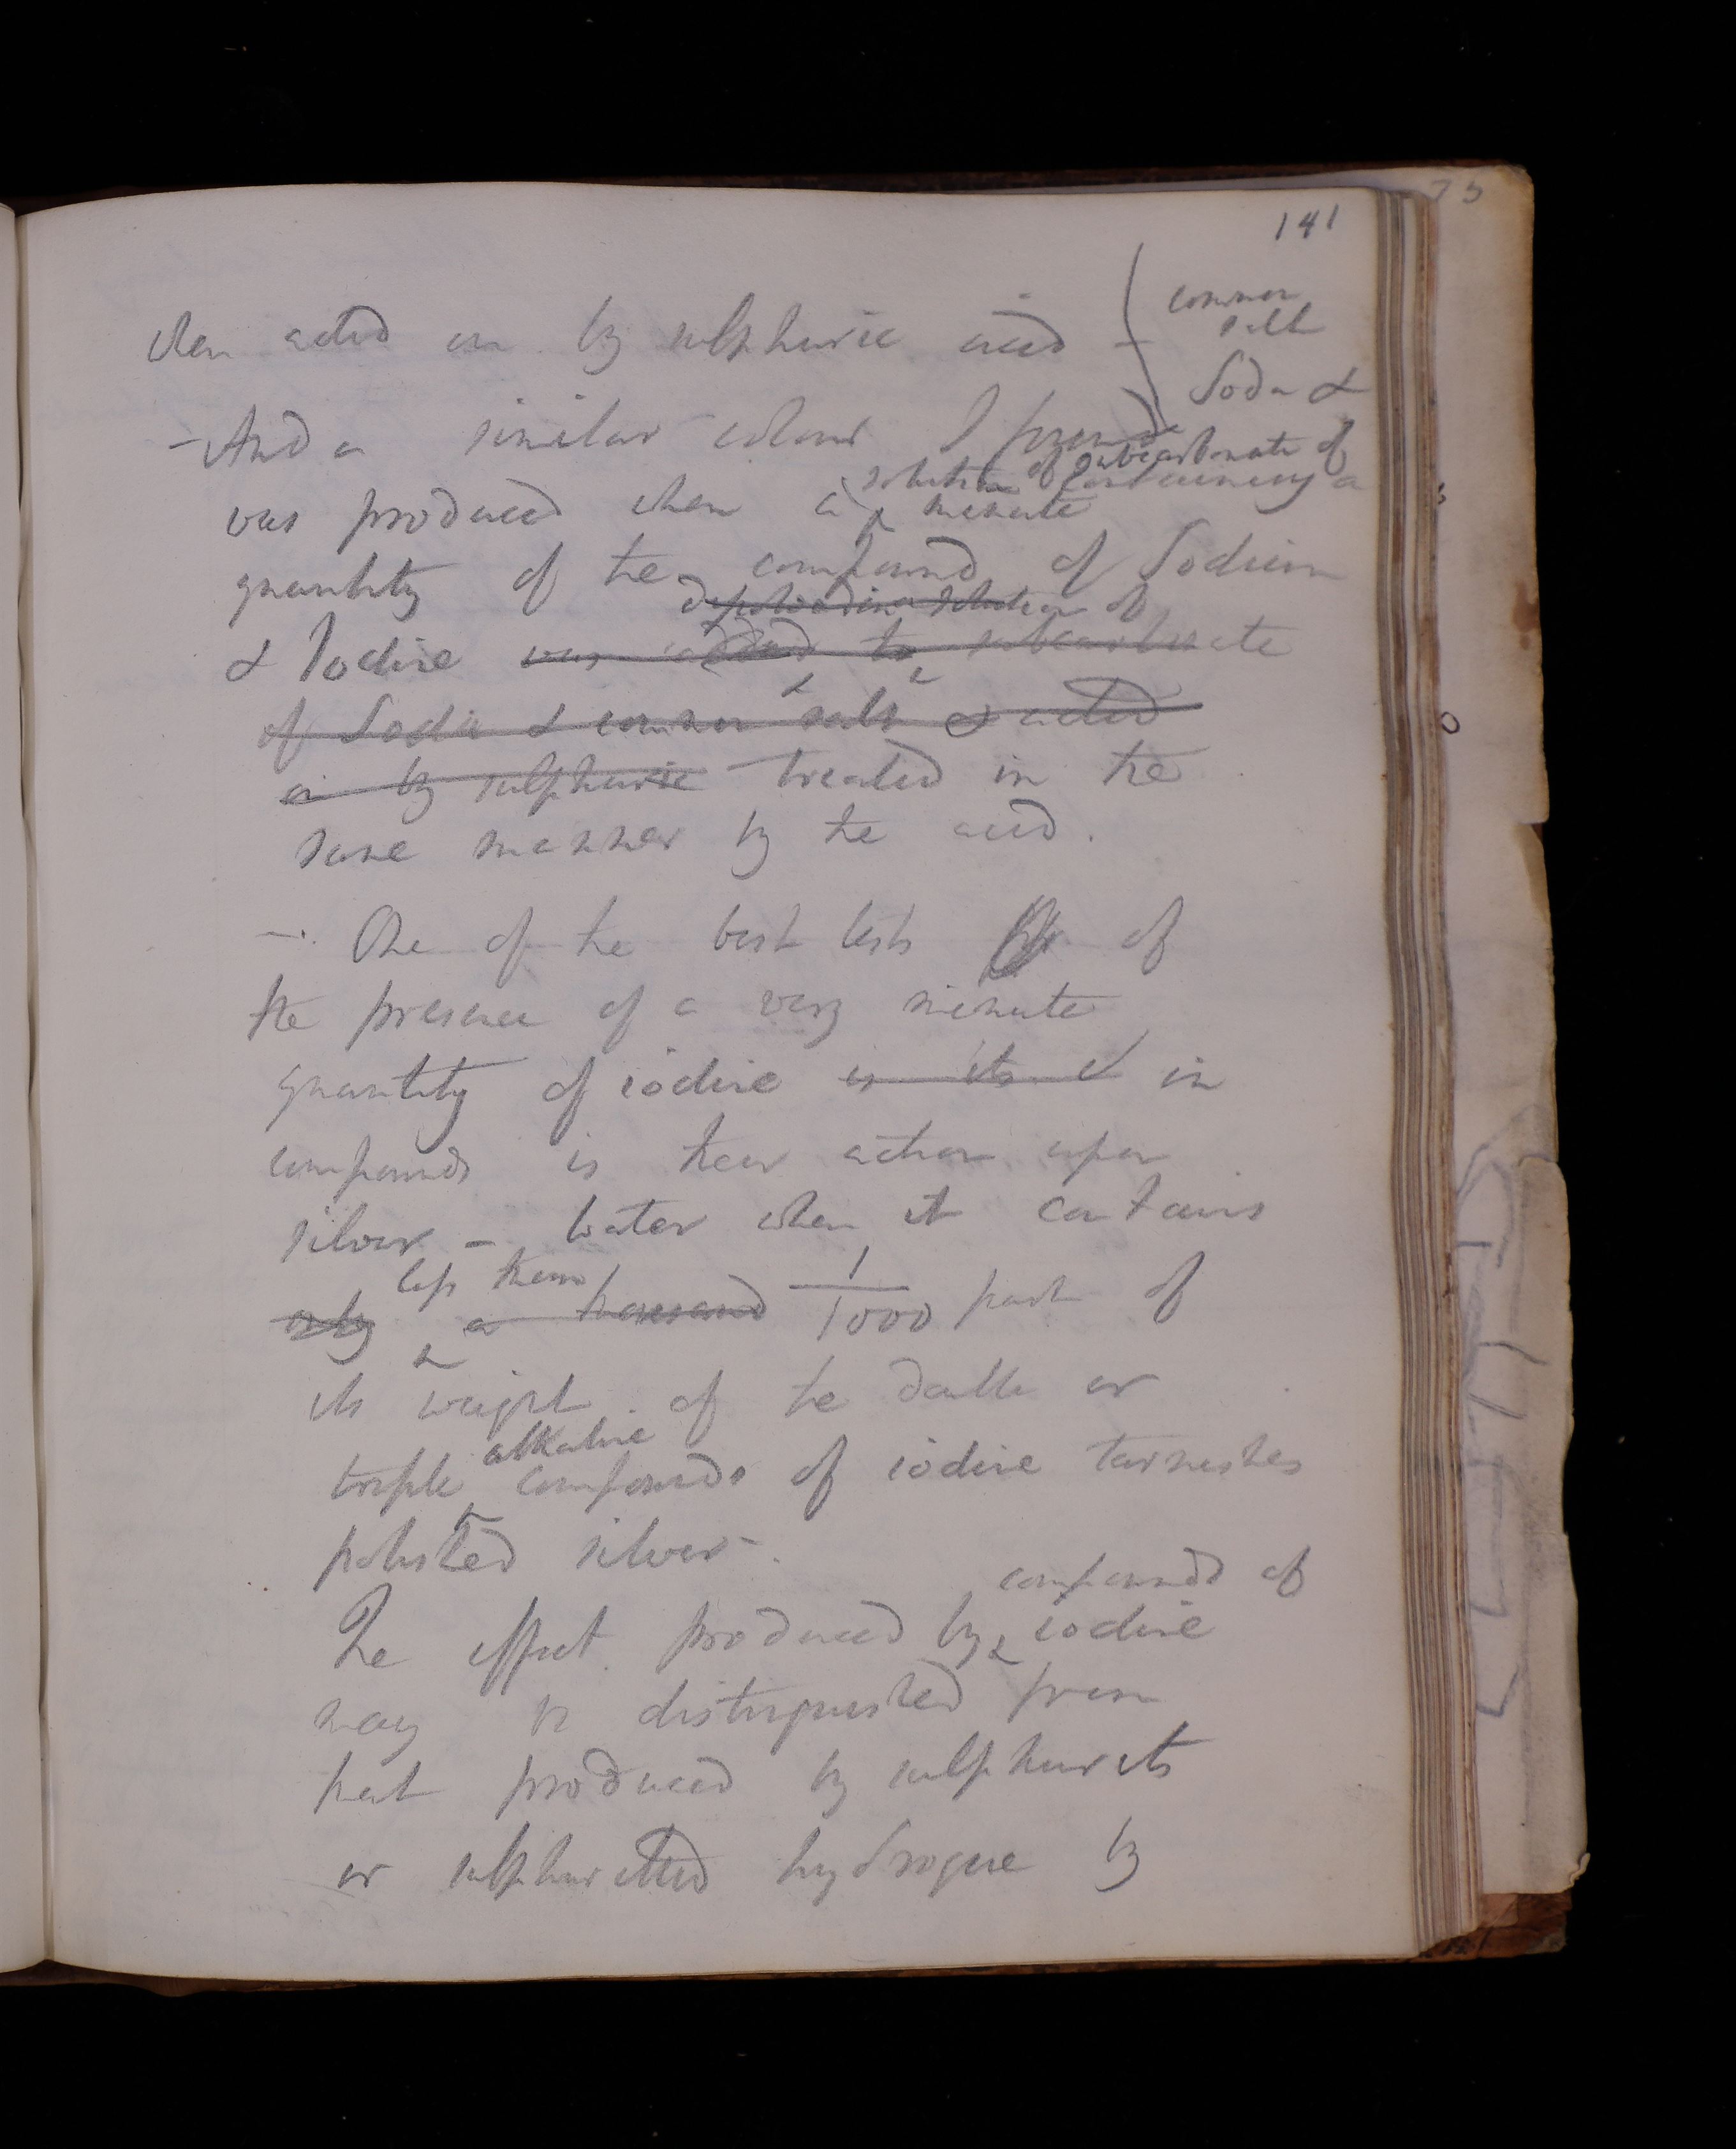 141
when acted on by sulphuric acid -
common
salt
Soda &
- And a similar colour I found
subcarbonate of
solution of containing a
was produced when a minute
quantity of the compound of Sodium
dissolved in a solution of
& Iodine was added to subcarbonate
of Soda & common salt & acted
on by sulphuric - treated in the
same manner by the acid.
- One of the best tests of
the presence of a very minute
quantity of iodine is its in
compounds is their action upon
silver - Water when it contains
less than
only a thousand 1/1000 part of
its weight of the double or
alkaline
triple compounds of iodine tarnishes
polished silver -.
compounds of
The effect produced by iodine
may be distinguished from
that produced by sulphurets
or sulphuretted hydrogene by